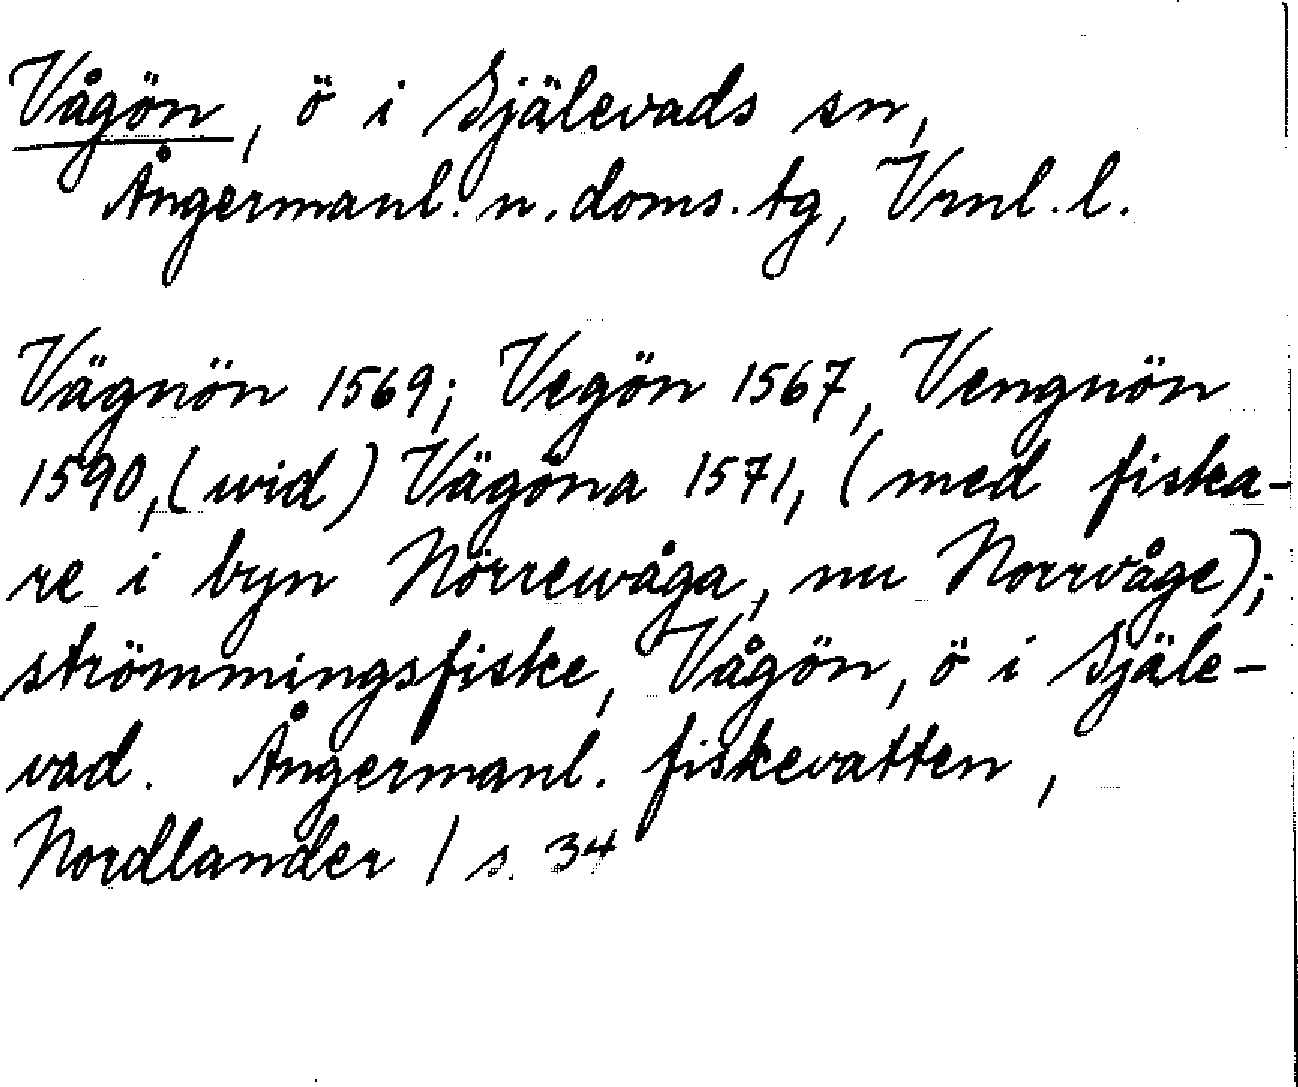 Vågön, ö i Själevads sn,
Ångermanl. n. doms. tg, Vrnl. l.
Vägnön 1569; Vegön 1567, Vengnön
1590, (wid) Vägöna 1571, (med fiska-
re i byn Nörrewåga, nu Norrvåge);
strömmingsfiske, Vågön, ö i Själe-
vad. Ångermanl. fiskevatten,
Nordlander 1 s. 34